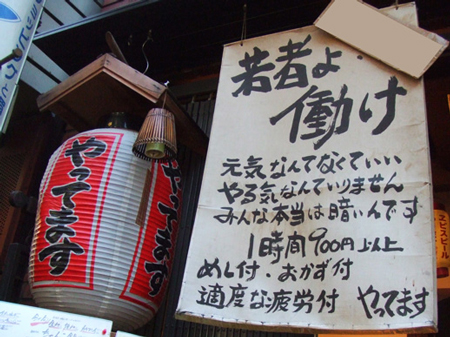 若者よ・
働け
元気なんてなくていい
やる気なんていりません
みんな本当は暗いんです
1時間900円以上
めし付・おかず付
適度な疲労付 やってます
やってます
やってます
ヱビスビール